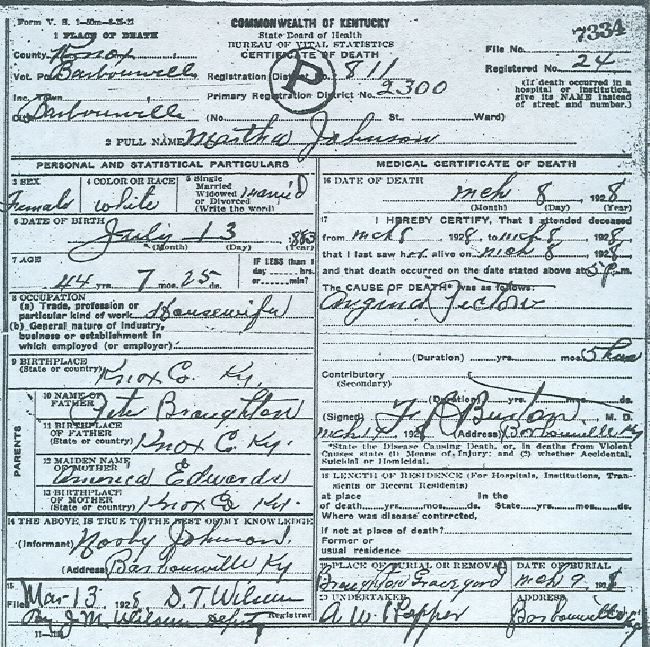 Form V. S. 1-50m-6-25-21
COMMONWEALTH OF KENTUCKY
State Board of Health
BUREAU OF VITAL STATISTICS
CERTIFICATE OF DEATH
7334
1 PLACE OF DEATH
County Knox
File No.
Vot. Pct. Barbourville
Registration District No. 811
Registered No. 24
Inc. Town
Primary Registration District No. 2300
(If death occurred in a hospital or institution, give its NAME instead of street and number.)
City Barbourville (No. St., Ward)
P
2 FULL NAME Martha Johnson
PERSONAL AND STATISTICAL PARTICULARS
3 SEX
Female
4 COLOR OR RACE
White
5 Single
Married
Widowed
or Divorced
(Write the word)
Married
6 DATE OF BIRTH
July 13 1883
(Month) (Day) (Year)
7 AGE
44 yrs. 7 mos. 25 ds.
IF LESS than 1
day hrs.
or min.?
8 OCCUPATION
(a) Trade, profession or
particular kind of work Housewife
(b) General nature of industry,
business or establishment in
which employed (or employer)
9 BIRTHPLACE
(State or country) Knox Co. Ky.
PARENTS
10 NAME OF
FATHER Pete Broughton
11 BIRTHPLACE
OF FATHER
(State or country) Knox C. Ky.
12 MAIDEN NAME
OF MOTHER America Edwards
13 BIRTHPLACE
OF MOTHER
(State or country) Knox Co Ky.
14 THE ABOVE IS TRUE TO THE BEST OF MY KNOWLEDGE
(Informant) Mosby Johnson
(Address) Barbourville Ky
15
Filed Mar-13 1928 D. T. Wilson
Registrar
By J. M. Wilson Deputy
MEDICAL CERTIFICATE OF DEATH
16 DATE OF DEATH
mch 8, 1928
(Month) (Day) (Year)
17 I HEREBY CERTIFY, That I attended deceased
from mch 8 1928, to mch 8, 1928,
that I last saw her alive on mch 8, 1928,
and that death occurred on the date stated above at m.
The CAUSE OF DEATH* was as follows:
Angina
(Duration) yrs. mos. 5 hours
Contributory
(Secondary)
(Duration) yrs. mos. ds.
(Signed) Burton, M. D.
mch 1928 (Address) Barbourville Ky
*State the Disease Causing Death, or, in deaths from Violent
Causes state (1) Means of Injury; and (2) whether Accidental,
Suicidal or Homicidal.
18 LENGTH OF RESIDENCE (For Hospitals, Institutions, Transients or Recent Residents)
at place In the
of death yrs. mos. ds. State yrs. mos. ds.
Where was disease contracted,
if not at place of death?
Former or
usual residence
19 PLACE OF BURIAL OR REMOVAL
Broughton Graveyard
DATE OF BURIAL
mch 9, 1928
20 UNDERTAKER
A. W. Hopper
ADDRESS
Barbourville Ky